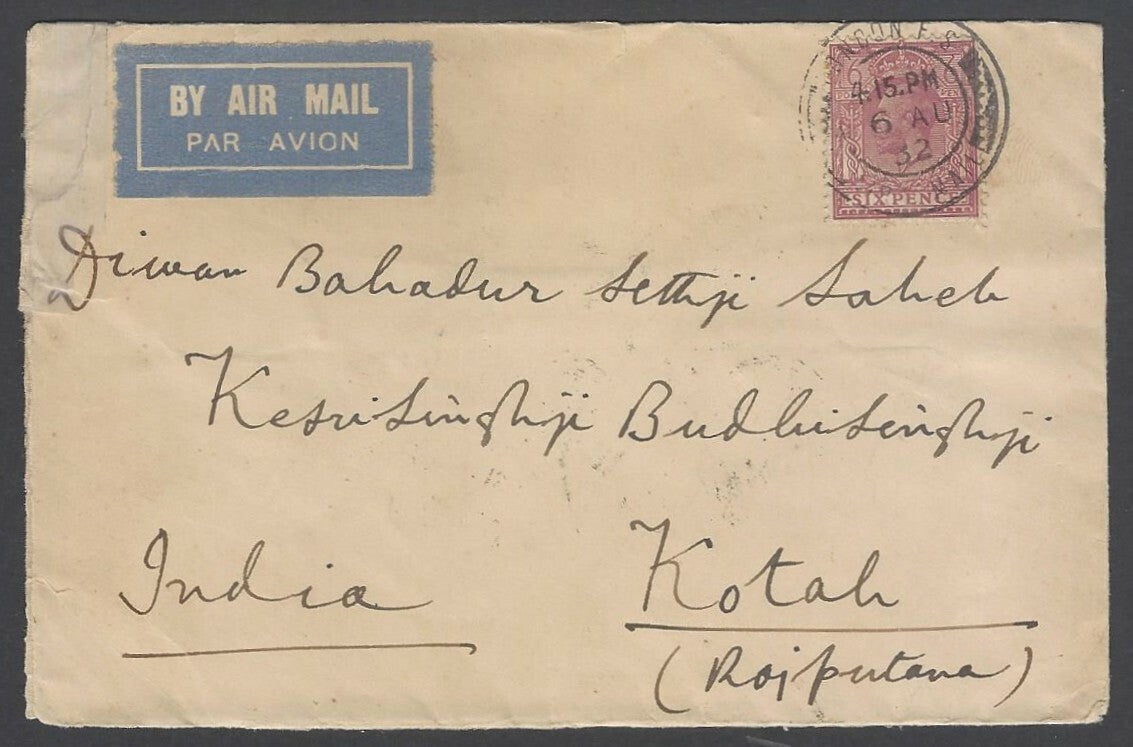 BY AIR MAIL
PAR AVION
4.15.PM
6 AU
32
SIX PENCE
Diwan Bahadur Setthji Saheb
Kesrisinghji Budhisinghji
India
Kotah
(Rajputana)